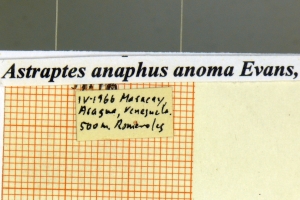 Astraptes anaphus anoma Evans,
IV-1966 Maracay,
Aragua, Venezuela.
500m.